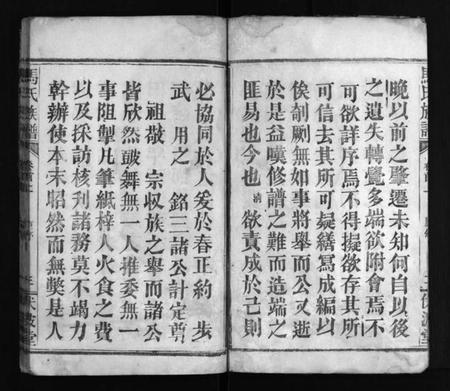 晚以前之肇遷未知何自以後
之遺失轉覺多端欲附會焉不
可欲詳序焉不得擬欲存其所
可信去其所可疑繕寫成編以
俟剞劂無如事將舉而公又逝
於是益嘆修譜之難而造端之
匪易也今也 淸 欲責成於己則
必協同於人爰於春正約 步
武 用之 銘三諸公計定尊
祖敬 宗收族之舉而諸公
皆欣然鼓舞無一人推委無一
事阻掣凡筆紙梓人火食之費
以及採訪核刊諸務莫不竭力
幹辦使本末昭然而無弊是人
馬氏族譜
卷首